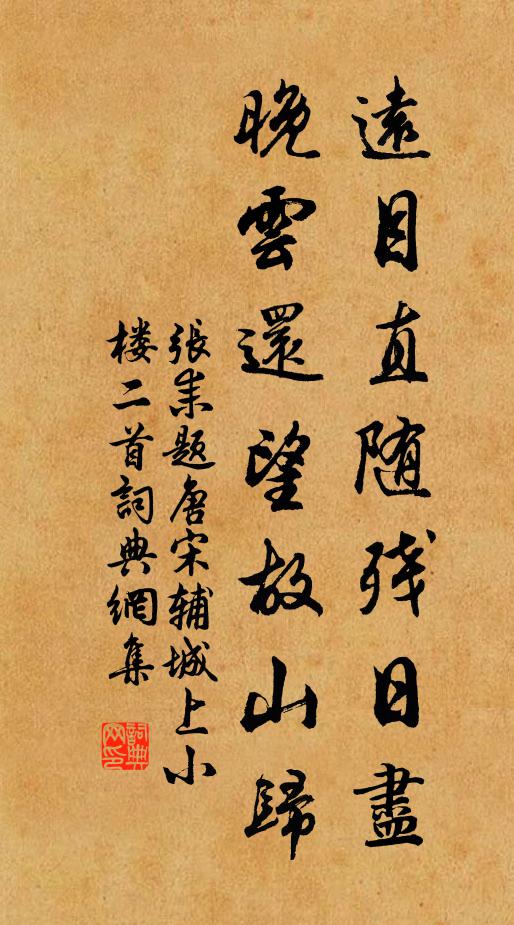 遠目直随残日盡
晚雲還望故山歸
張耒題唐宋輔城上小
楼二首詞典網集
詞典網印